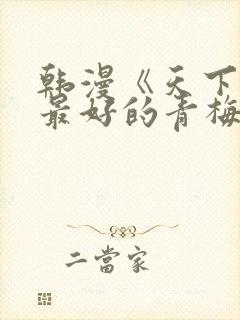 韩漫《天下
最好的青梅
二當家